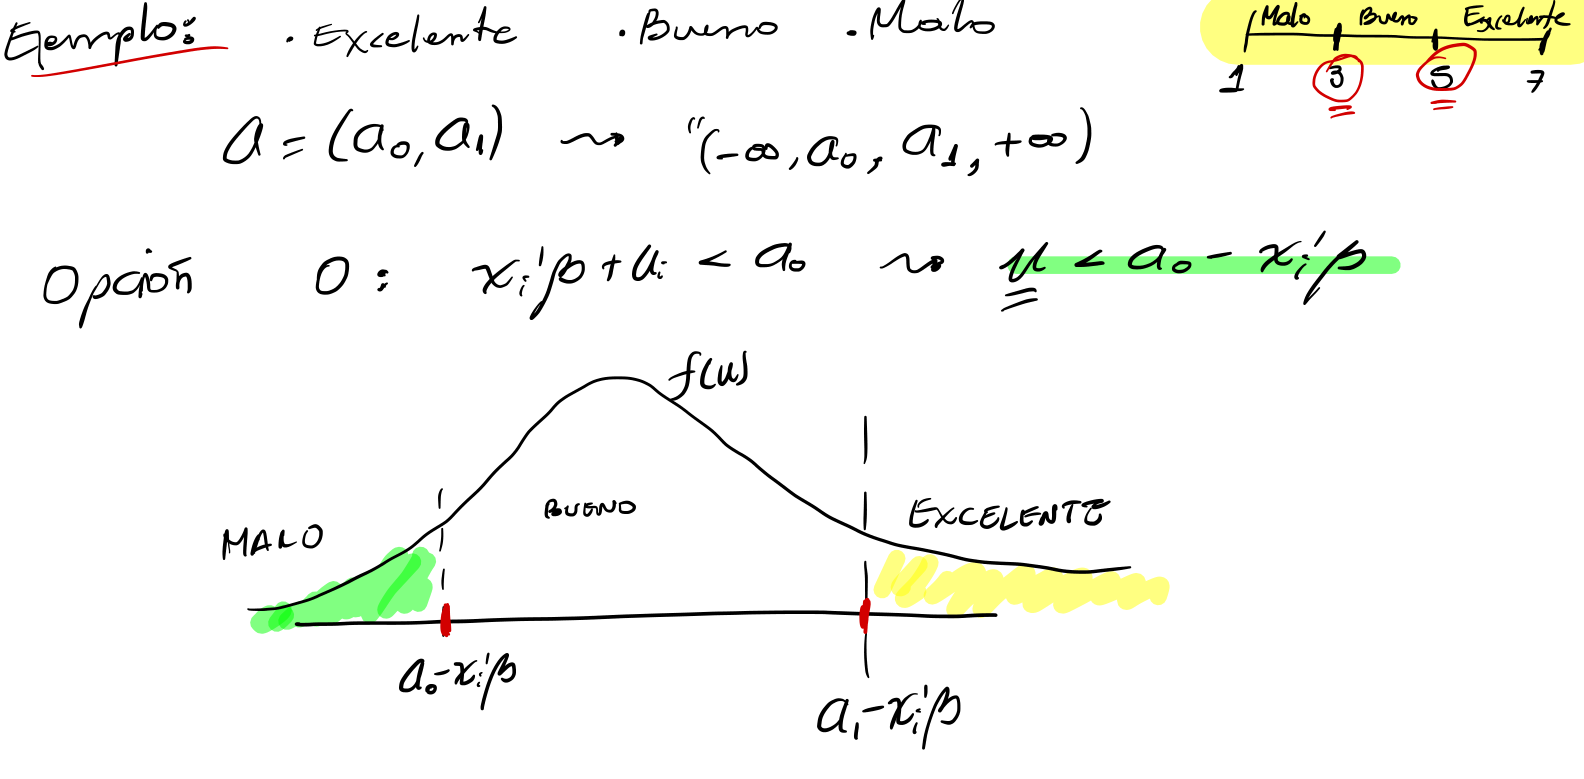 Ejemplo: · Excelente · Bueno · Malo
Malo Bueno Excelente
1 3 5 7
a = (a₀, a₁) ⇝ "(-∞, a₀, a₁, +∞)
Opción 0: xᵢ'β + uᵢ < a₀ ⇝ u < a₀ - xᵢ'β
f(u)
MALO BUENO EXCELENTE
a₀-xᵢ'β a₁-xᵢ'β